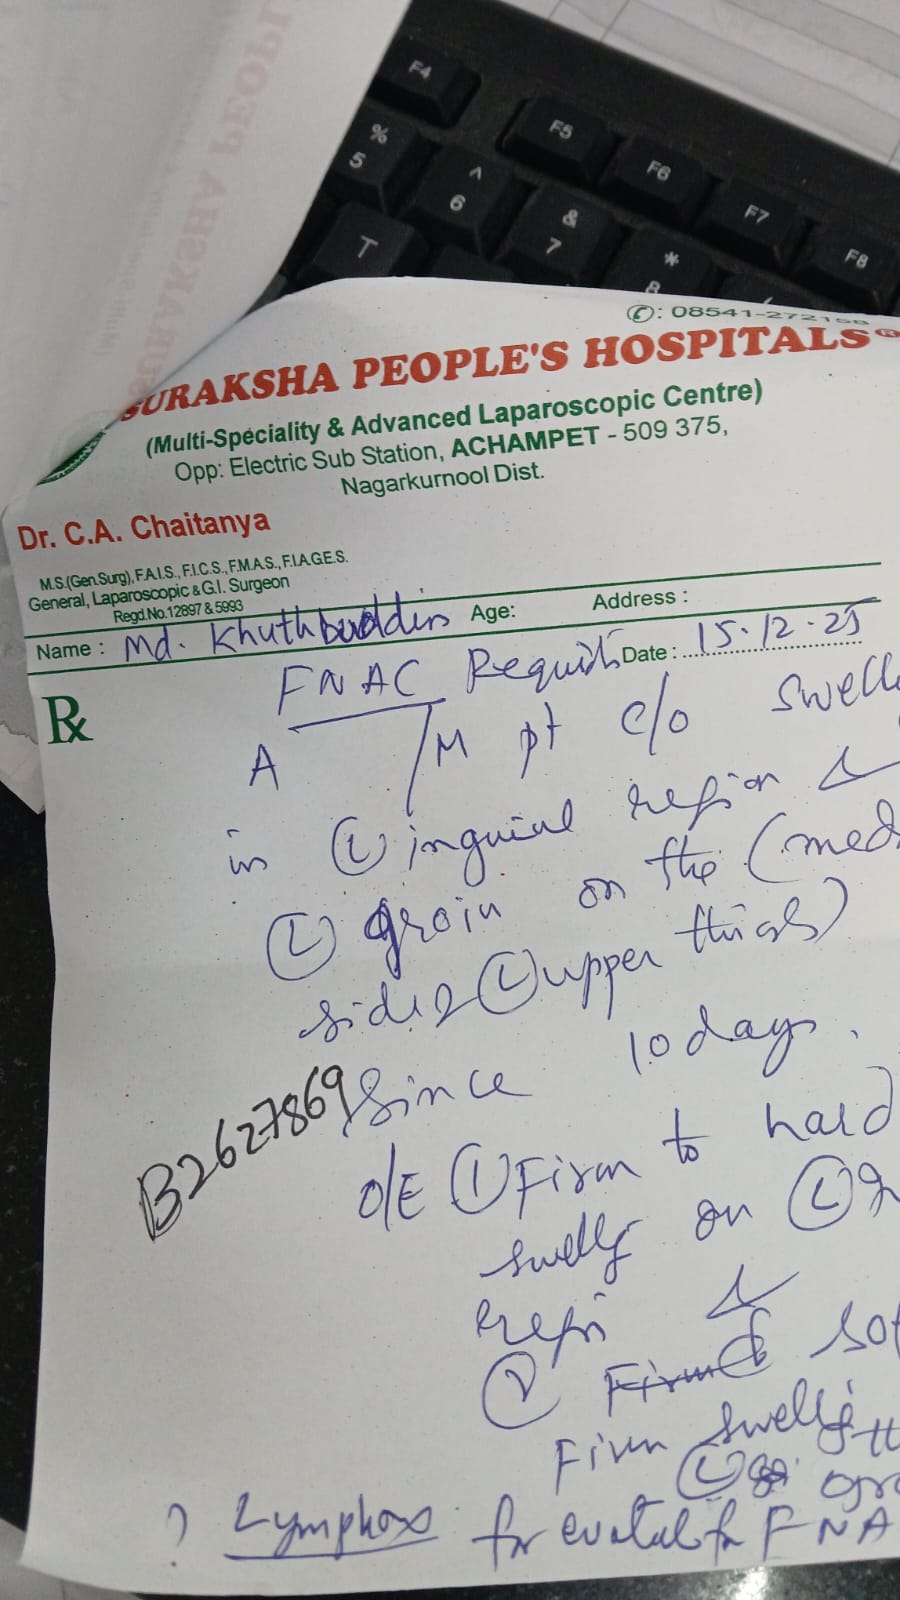 F4
%
5
^
6
F5
F6
&
7
F7
*
8
F8
T
SURAKSHA PEOPL
✆: 08541-272158
SURAKSHA PEOPLE'S HOSPITALS®
(Multi-Speciality & Advanced Laparoscopic Centre)
Opp: Electric Sub Station, ACHAMPET - 509 375,
Nagarkurnool Dist.
Dr. C.A. Chaitanya
M.S.(Gen.Surg), F.A.I.S., F.I.C.S., F.M.A.S., F.I.A.G.E.S.
General, Laparoscopic & G.I. Surgeon
Regd.No.12897 & 5993
Name : Md. Khuthbuddin Age: Address :
Date : 15.12.25
Rx
FNAC
A /M pt c/o swell
in (L) inguinal region &
(L) groin on the (med
side (L) upper thigh)
since 10 days.
B2627869
O/E (1) Firm to hard
swellg on (L)
&
(2) Firm
Firm swellg
(L)
? for FNA